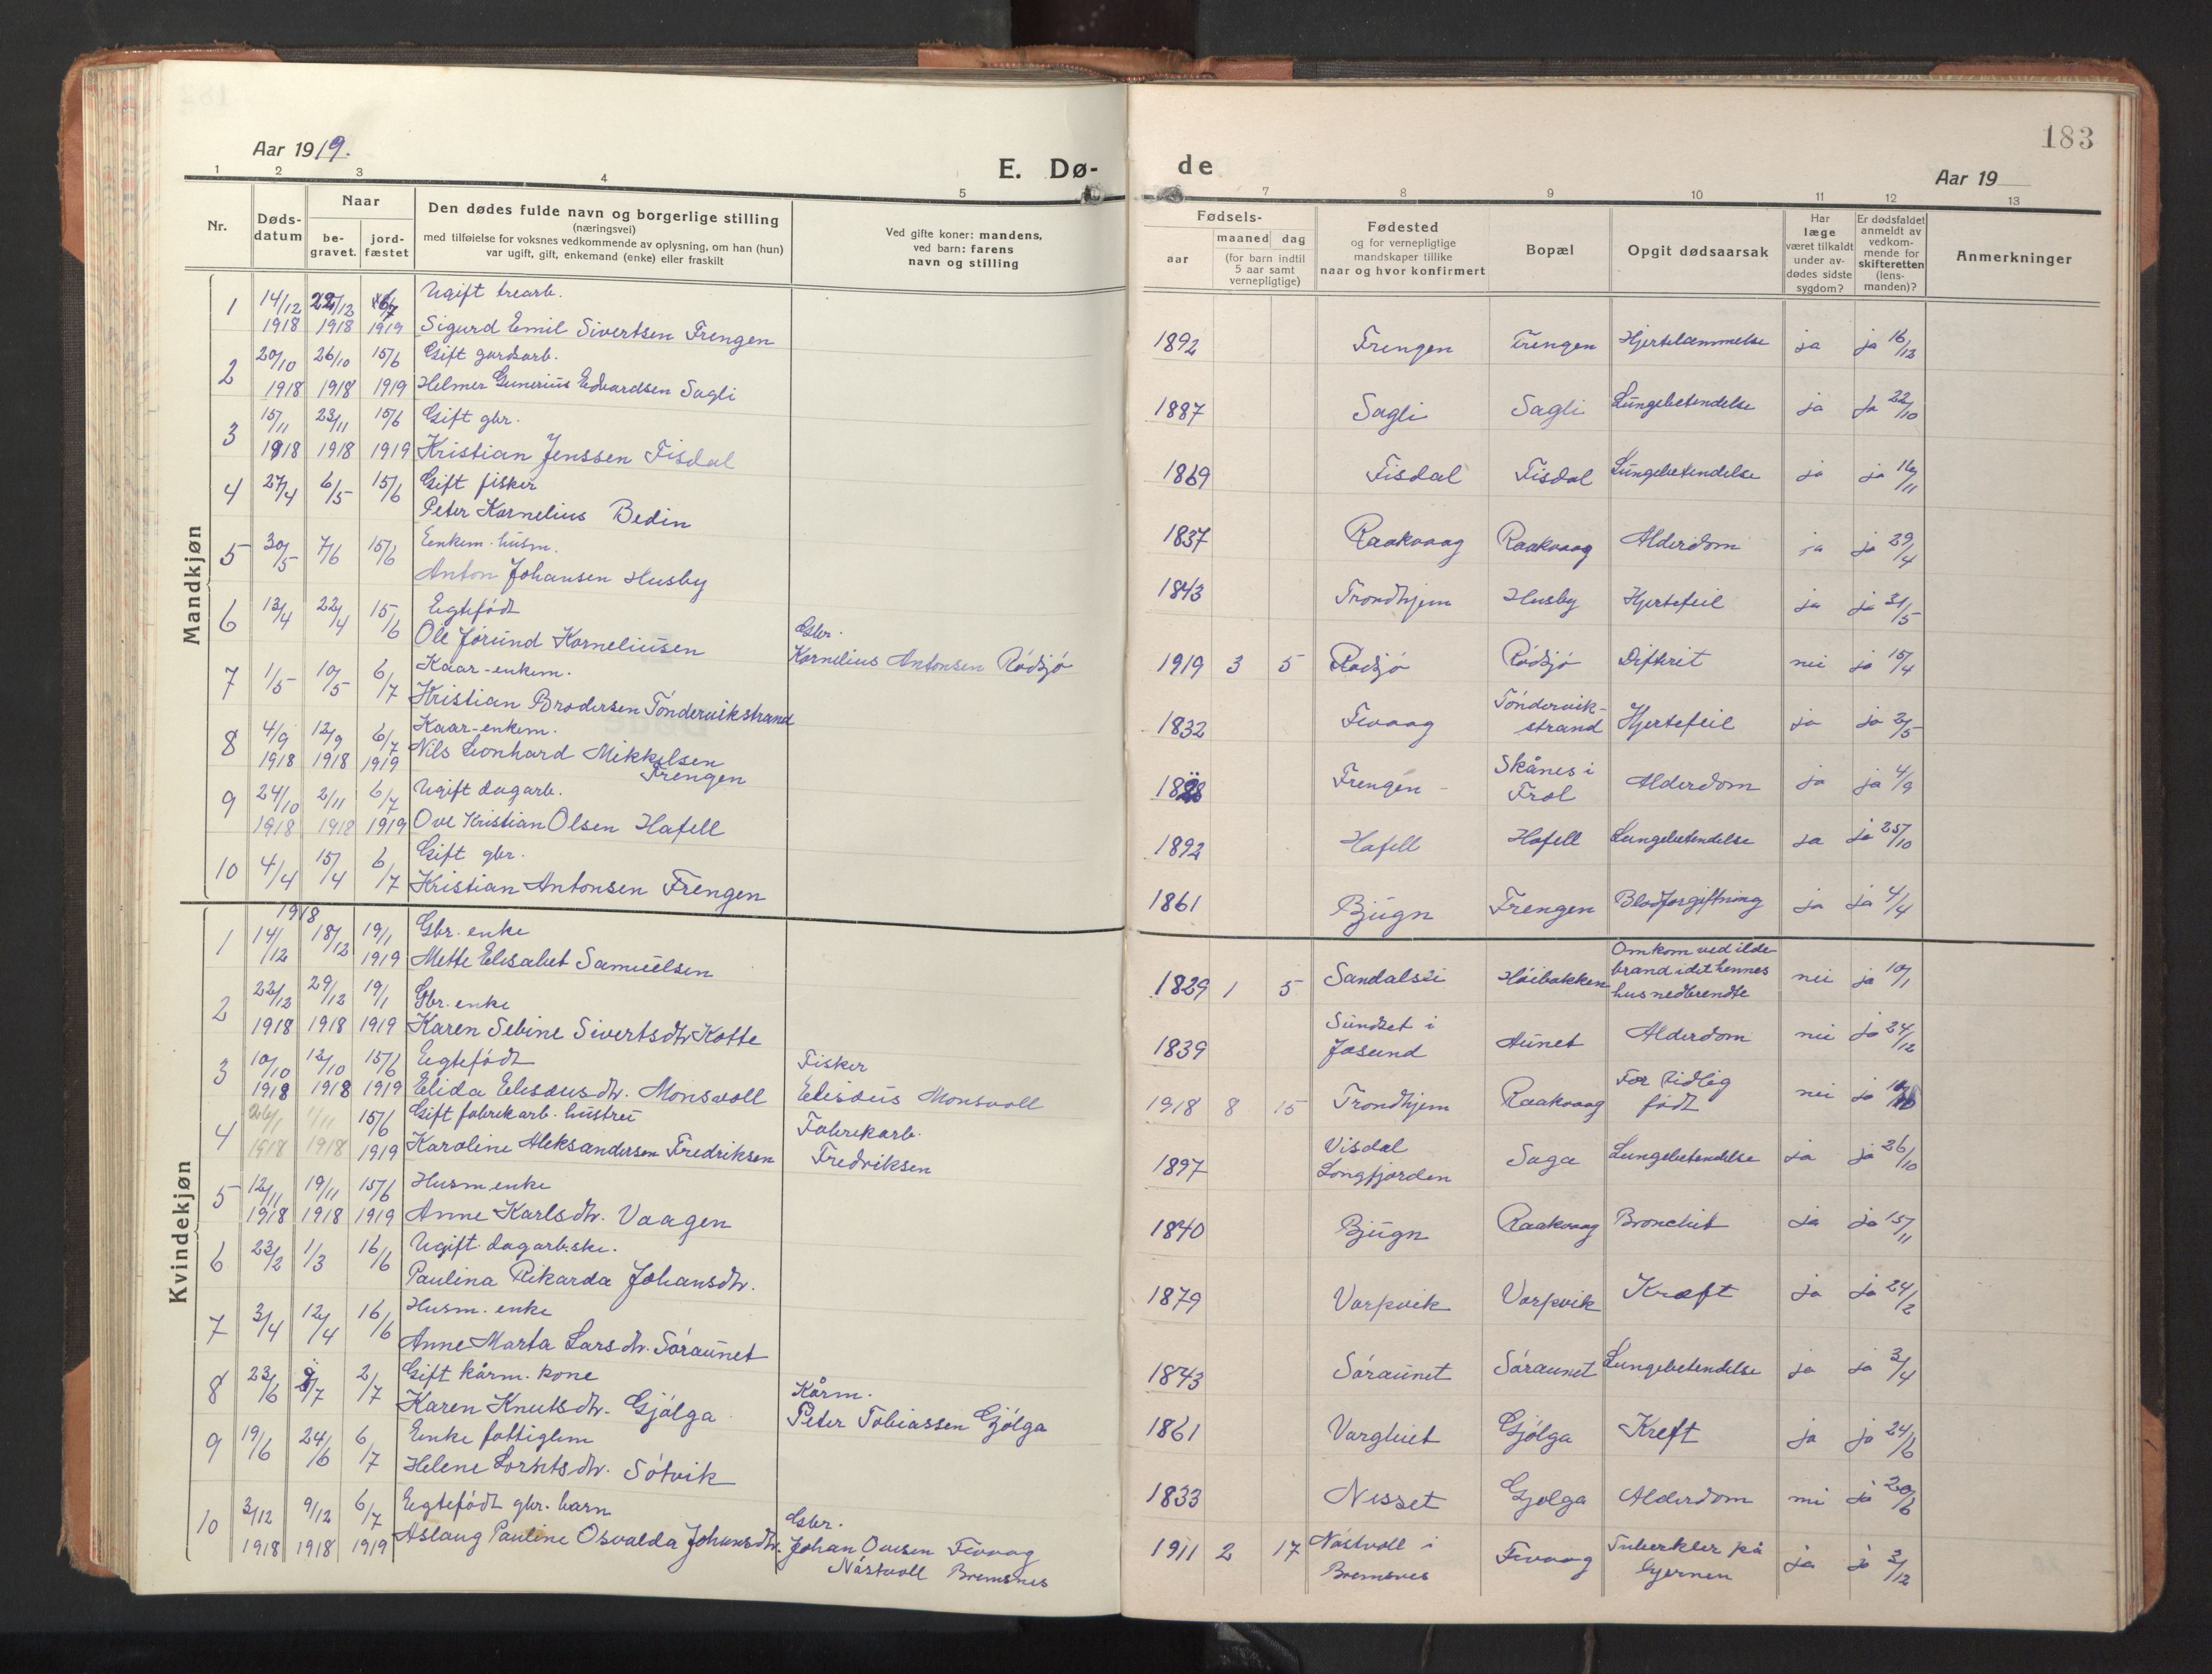 183
Aar 1919.
E. Dø-
de
Aar 19
1 2 3 4 5 6 7 8 9 10 11 12 13
Nr.
Døds-
datum
Naar
be-
gravet.
jord-
fæstet
Den dødes fulde navn og borgerlige stilling
(næringsvei)
med tilføielse for voksnes vedkommende av oplysning, om han (hun)
var ugift, gift, enkemand (enke) eller fraskilt
Ved gifte koner: mandens,
ved barn: farens
navn og stilling
Fødsels-
aar
maaned dag
(for barn indtil
5 aar samt
vernepligtige)
Fødested
og for vernepligtige
mandskaper tillike
naar og hvor konfirmert
Bopæl
Opgit dødsaarsak
Har
læge
været tilkaldt
under av-
dødes sidste
sygdom?
Er dødsfaldet
anmeldt av
vedkom-
mende for
skifteretten
(lens-
manden)?
Anmerkninger
Mandkjøn
1 14/12 22/12 6/7 Ugift trearb.
1918 1918 1919 Sigurd Emil Sivertsen Frengen
1892 Frengen Frengen Hjertelammelse ja ja 16/12
2 20/10 26/10 15/6 Gift gardarb.
1918 1918 1919 Helmer Gunerius Edvardsen Sagli
1887 Sagli Sagli Lungebetendelse ja ja 22/10
3 15/11 23/11 15/6 Gift gbr.
1918 1918 1919 Kristian Jenssen Fisdal
1869 Fisdal Fisdal Lungebetendelse ja ja 16/11
4 27/4 6/5 15/6 Gift fisker
Peter Kornelius Bedin
1837 Raakvaag Raakvaag Alderdom ja ja 29/4
5 30/5 7/6 15/6 Enkem. husm.
Anton Johansen Husby
1843 Trondhjem Husby Hjertefeil ja ja 31/5
6 13/4 22/4 15/6 Egtefødt
Ole Jørund Korneliusen
Gbr.
Kornelius Antonsen Rødsjø
1919 3 5 Rødsjø Rødsjø Difterit nei ja 15/4
7 1/5 10/5 6/7 Kaar-enkem.
Kristian Brodersen Tøndervikstrand
1832 Fevaag Tøndervik-
strand Hjertefeil ja ja 2/5
8 4/9 12/9 6/7 Kaar-enkem.
1918 1918 1919 Nils Leonhard Mikkelsen
Frengen
1828 Frengen Skånes i
Frol Alderdom ja ja 4/9
9 24/10 2/11 6/7 Ugift dagarb.
1918 1918 1919 Ove Kristian Olsen Hafell
1892 Hafell Hafell Lungebetendelse ja ja 25/10
10 4/4 15/4 6/7 Gift gbr.
Kristian Antonsen Frengen
1861 Bjugn Frengen Blodforgiftning ja ja 4/4
Kvindekjøn
1918
1 14/12 18/12 19/1 Gbr. enke
1919 Mette Elisabet Samuelsen
1829 1 5 Høibakken Omkom ved ilde-
brand idet hennes
hus nedbrendte nei ja 10/1
2 22/12 29/12 19/1 Gbr. enke
1918 1918 1919 Karen Sebine Sivertsdtr. Kotte
1839 Sundset i
Jøssund Aunet Alderdom nei ja 24/12
3 10/10 12/10 15/6 Egtefødt
1918 1918 1919 Elida Eliseusdtr. Monsvoll
Fisker
Eliseus Monsvoll
1918 8 15 Trondhjem Raakvaag For tidlig
født nei ja
4 26/1 1/11 15/6 Gift fabrikarb. hustru
1918 1918 1919 Karoline Aleksandersen Fredriksen
Fabrikarb.
Fredriksen
1897 Visdal
Langfjorden Saga Lungebetendelse ja ja 26/10
5 12/11 19/11 15/6 Husm. enke
1918 1918 1919 Anne Karlsdtr. Vaagen
1840 Bjugn Raakvaag Bronchit ja ja 15/11
6 23/2 1/3 16/6 Ugift dagarb.ske.
Paulina Rikarda Johansdtr.
1879 Varpvik Varpvik Kræft ja ja 24/2
7 3/4 12/4 16/6 Husm. enke
Anne Marta Larsdtr. Søraunet
1843 Søraunet Søraunet Lungebetendelse ja ja 3/4
8 23/6 2/7 2/7 Gift kårm. kone
Karen Knutsdtr. Gjølga
Kårm.
Peter Tobiassen Gjølga
1861 Varghiet Gjølga Kreft ja ja 24/6
9 19/6 24/6 6/7 Enke fattiglem
Helene Lorntsdtr. Søtvik
1833 Nesset Gjølga Alderdom nei ja 20/6
10 3/12 9/12 6/7 Egtefødt gbr. barn
1918 1918 1919 Aslaug Pauline Osvalda Johansdtr.
Gbr.
Johan Ovesen Fevaag
Nåstvoll Bremsnes
1911 2 17 Nåstvoll i
Bremsnes Fevaag Tuberkler på
hjernen ja ja 3/12